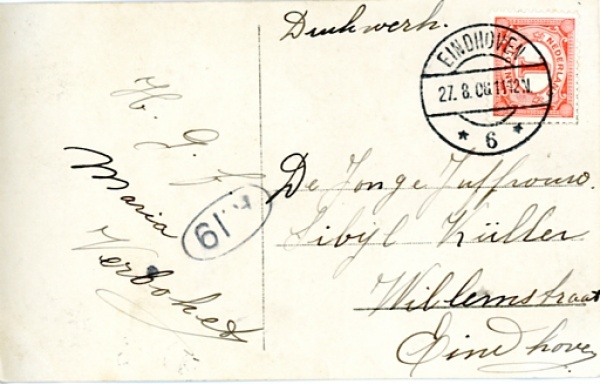 Drukwerk.
EINDHOVEN
27. 8. 08. 11-12 V.
* 6 *
NEDERLAND
H. G. f.
Maria
Verbohed
19
De Jonge Juffrouw.
Sibyl Küller
Willemstraat
Eindhoven